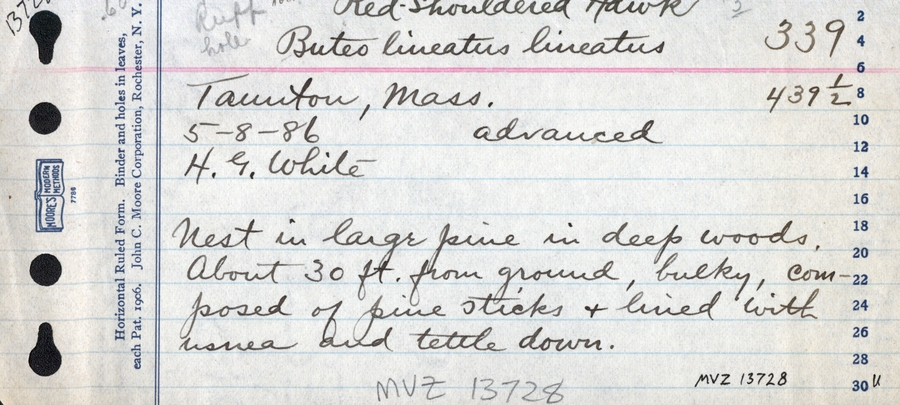 Red-Shouldered Hawk
Buteo lineatus lineatus 339
Taunton, Mass. 439 1/2
5-8-86 advanced
H. G. White
Nest in large pine in deep woods.
About 30 ft. from ground, bulky, com-
posed of pine sticks + lined with
usnea and tettle down.
MVZ 13728
MVZ 13728
hole
Horizontal Ruled Form. Binder and holes in leaves,
each Pat. 1906. John C. Moore Corporation, Rochester, N. Y.
MOORE'S MODERN METHODS
7780
2
4
6
8
10
12
14
16
18
20
22
24
26
28
30